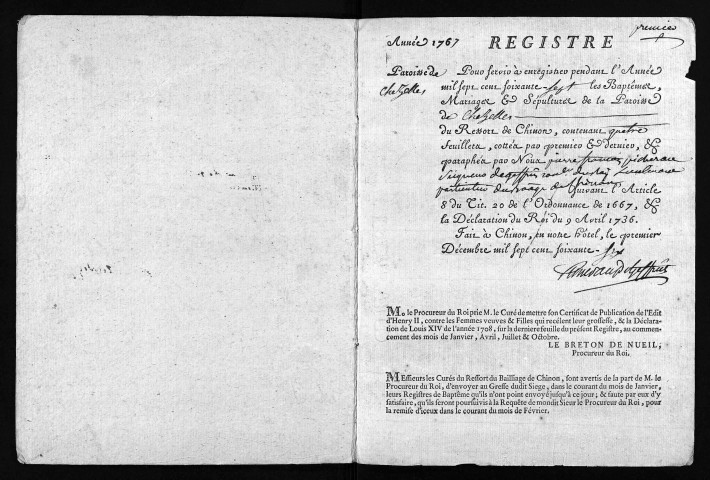 premier
Année 1767 REGISTRE
Paroisse de Chezelles
Pour servir à enregistrer pendant l'Année
mil sept cent soixante-sept les Baptêmes,
Mariages & Sépultures de la Paroisse
de Chezelles
du Ressort de Chinon, contenant quatre
feuillets, cottés par premier & dernier, &
paraphés par Nous pierre françois
Seigneur du Roy Lieutenant
particulier au siege de Chinon Suivant l'Article
8 du Tit. 20 de l'Ordonnance de 1667, &
la Déclaration du Roi du 9 Avril 1736.
Fait à Chinon, en notre hôtel, le premier
Décembre mil sept cent soixante-six
Mr le Procureur du Roi prie M. le Curé de mettre son Certificat de Publication de l'Edit
d'Henry II, contre les Femmes veuves & Filles qui recélent leur grossesse, & la Déclara-
tion de Louis XIV de l'année 1708, sur la derniere feuille du présent Registre, au commen-
cement des mois de Janvier, Avril, Juillet & Octobre.
LE BRETON DE NUEIL,
Procureur du Roi.
MESsieurs les Curés du Ressort du Bailliage de Chinon, sont avertis de la part de M. le
Procureur du Roi, d'envoyer au Greffe dudit Siege, dans le courant du mois de Janvier,
leurs Registres de Baptême qu'ils n'ont point envoyé jusqu'à ce jour; & faute par eux d'y
satisfaire, qu'ils seront poursuivis à la Requête de mondit Sieur le Procureur du Roi, pour
la remise d'iceux dans le courant du mois de Février.